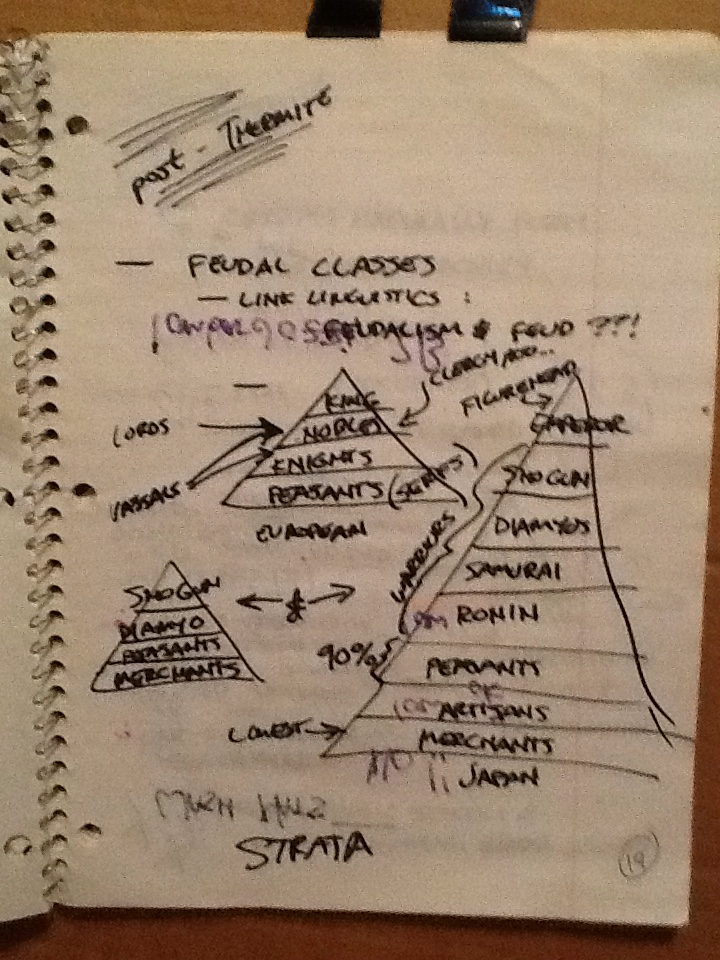 post - THERMITE
— FEUDAL CLASSES
— LINK LINGUISTICS :
FEUDALISM & FEUD ??!
CLERGY ADD...
FIGUREHEAD
LORDS
VASSALS
KING
NOBLES
KNIGHTS
PEASANTS (SERFS)
EUROPEAN
SHOGUN
DIAMYO
PEASANTS
MERCHANTS
&
WARRIORS
90%
LOWEST
EMPEROR
SHOGUN
DIAMYOS
SAMURAI
RONIN
PEASANTS
ARTISANS
MERCHANTS
JAPAN
STRATA
19